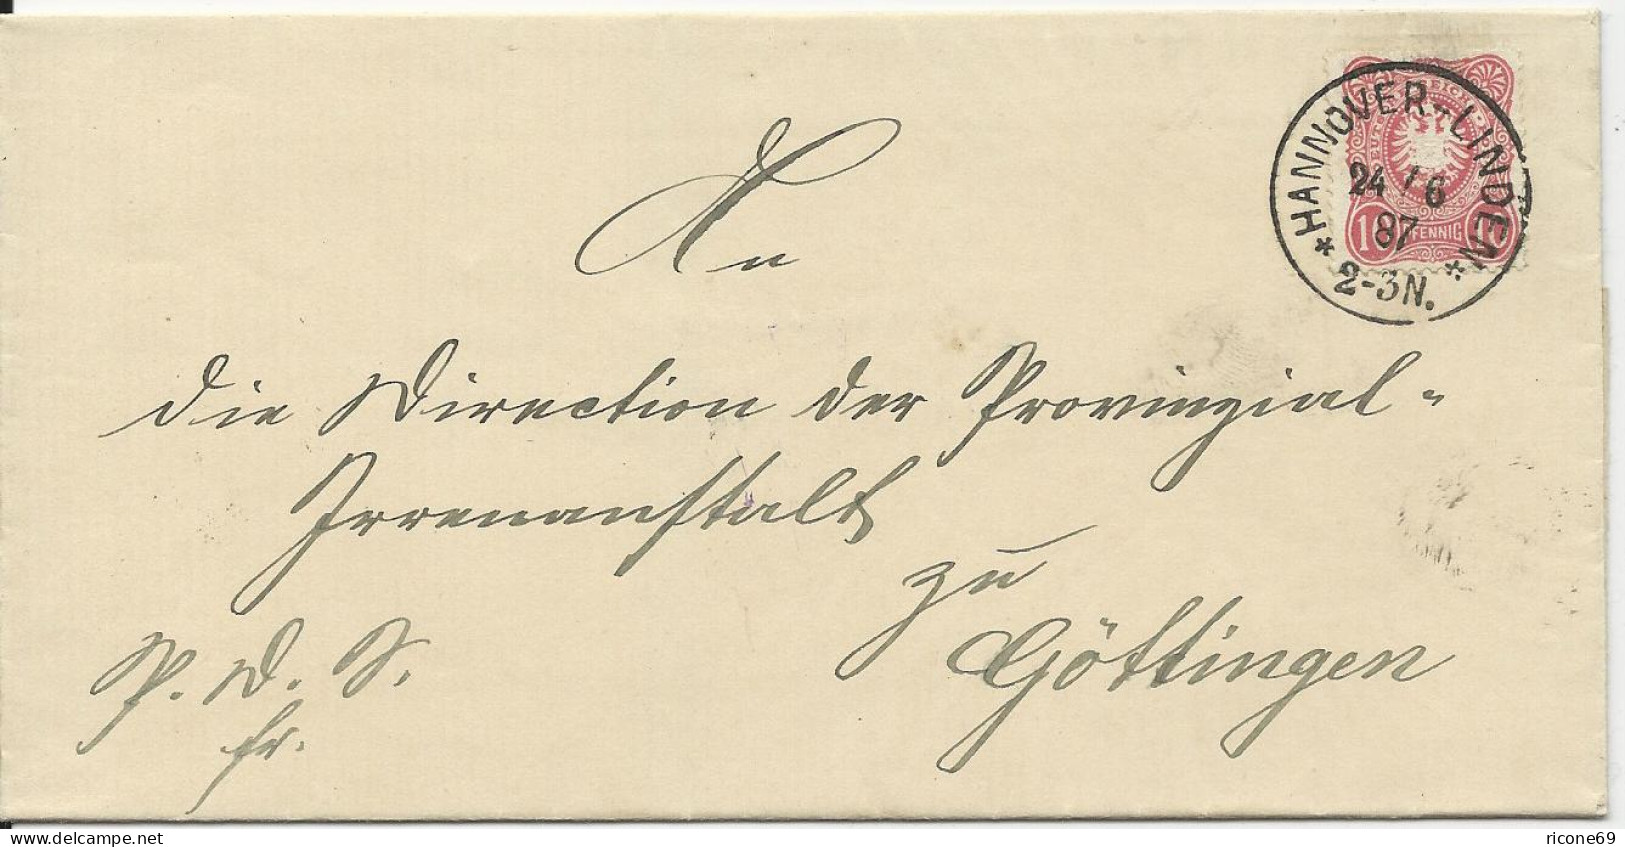 HANNOVER-LINDEN
24/6
87
* 2-3N. *
REICH
10 PFENNIG 10
An
die Direction der Provinzial-
Irrenanstalt
zu
Göttingen
P. D. S.
fr.
www.delcampe.net
ricone69